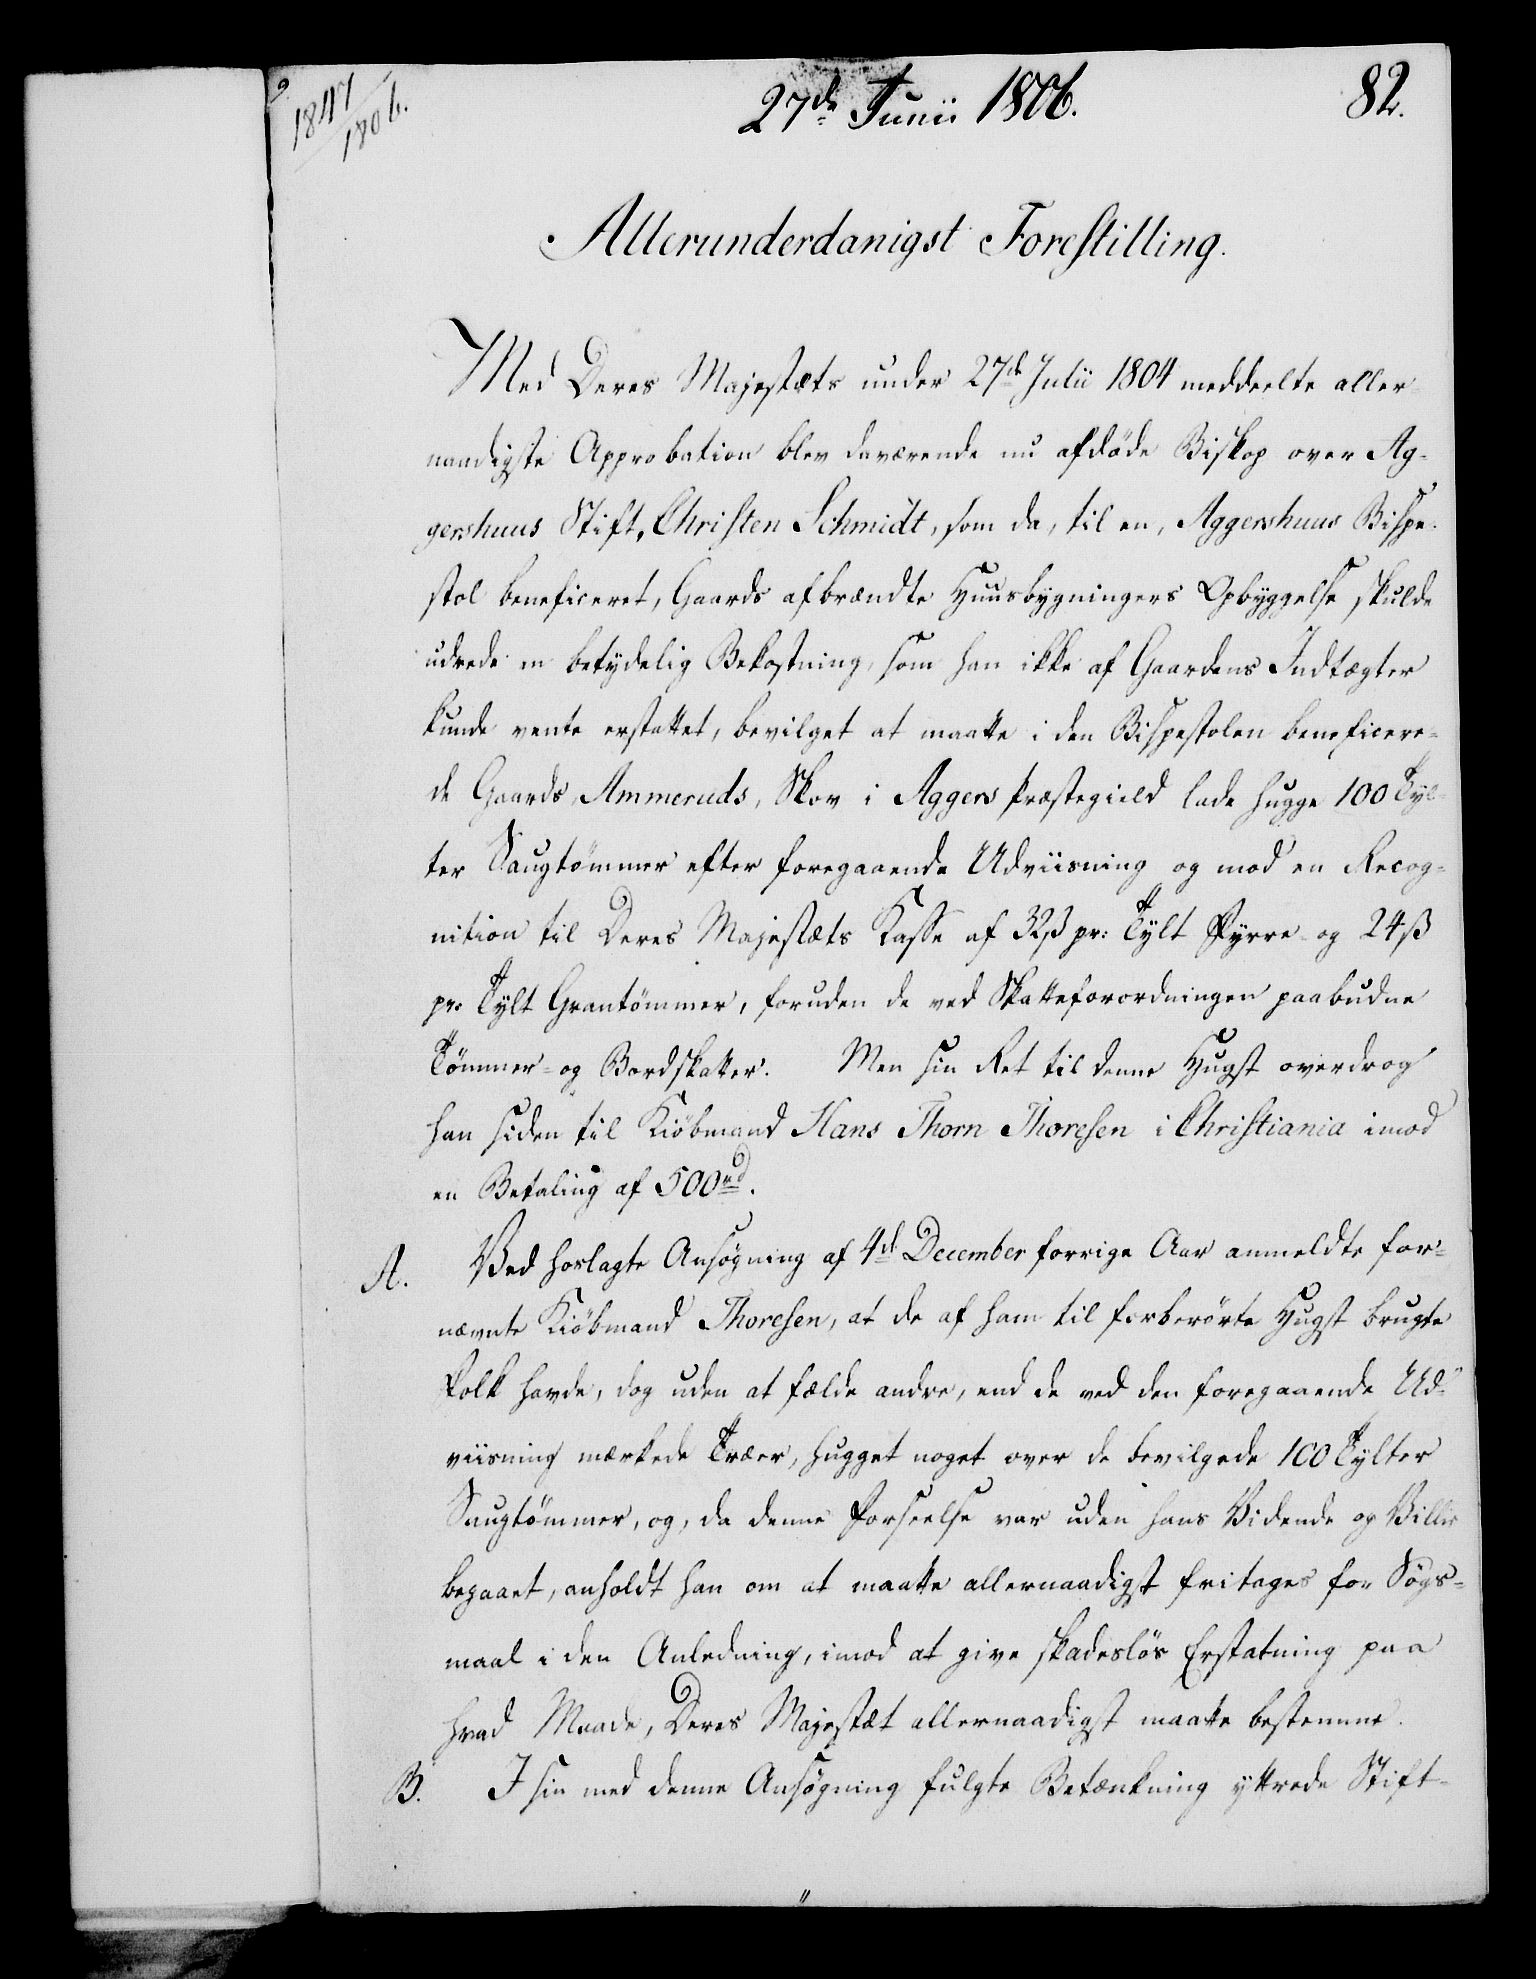 1847
1806.
27de Junii 1806.
82.
Allerunderdanigst Forestilling.
Med Deres Majestæts under 27de Julii 1804 meddeelte aller-
naadigste Approbation blev daværende nu afdøde Biskop over Ag-
gershuus Stift, Christen Schmidt, som da, til en, Aggershuus Bispe-
stol beneficeret, Gaards afbrændte Huusbygningers Opbyggelse skulde
udrede en betydelig Bekostning, som han ikke af Gaardens Indtægter
kunde vente erstattet, bevilget at maatte i den Bispestolen beneficere-
de Gaards, Ammeruds, Skov i Aggers Præstegield lade hugge 100 Tyl-
ter Saugtömmer efter foregaaende Udviisning og mod en Recog-
nition til Deres Majestæts Kasse af 32 ß pr: Tylt Fyrre- og 24 ß
pr. Tylt Grantömmer, foruden de ved Skatteforordningen paabudne
Tömmer- og Bordskatter. Men sin Ret til denne Hugst overdrog
han siden til Kiöbmand Hans Thorn Thoresen i Christiania imod
en Betaling af 500 rd.
A. Ved hoslagte Ansøgning af 4de December forrige Aar anmeldte for-
nævnte Kiöbmand Thoresen, at de af ham til forberörte Hugst brugte
Folk havde, dog uden at fælde andre, end de ved den foregaaende Ud-
viisning mærkede Træer, hugget noget over de bevilgede 100 Tylter
Saugtömmer, og, da denne Forseelse var uden hans Vidende og Villie
begaaet, anholdt han om at maatte allernaadigst fritages for Søgs-
maal i den Anledning, imod at give skadeslös Erstatning paa
hvad Maade, Deres Majestæt allernaadigst maatte bestemme.
B. I sin med denne Ansøgning fulgte Betænkning yttrede Stift-